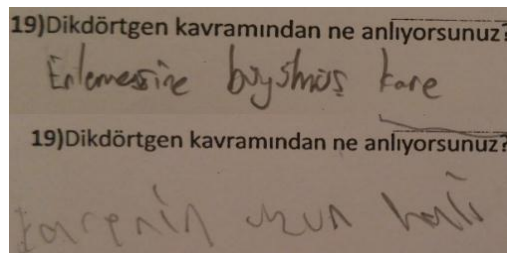 19)Dikdörtgen kavramından ne anlıyorsunuz?
Enlemessine büyümüş kare
19)Dikdörtgen kavramından ne anlıyorsunuz?
karenin uzun hali